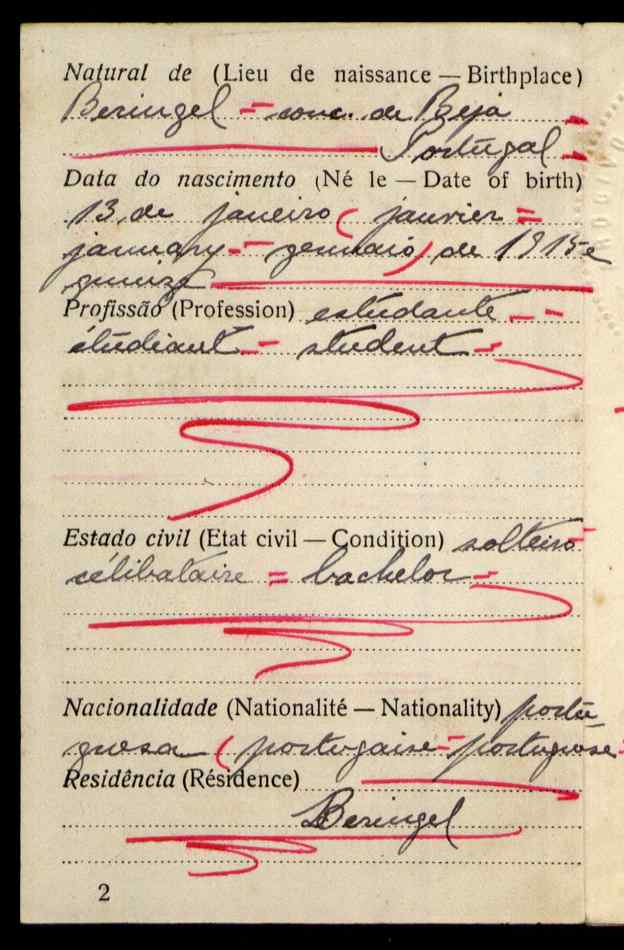 Natural de (Lieu de naissance — Birthplace)
Beringel – conc. de Beja
Portugal
Data do nascimento (Né le — Date of birth)
13 de janeiro ( janvier =
january – gennaio) de 1915 e
quinze
Profissão (Profession) estudante –
étudiant – student –
Estado civil (Etat civil — Condition) solteiro –
célibataire = bachelor –
Nacionalidade (Nationalité — Nationality) portu-
guesa (portugaise – portuguese
Residência (Résidence)
Beringel
2